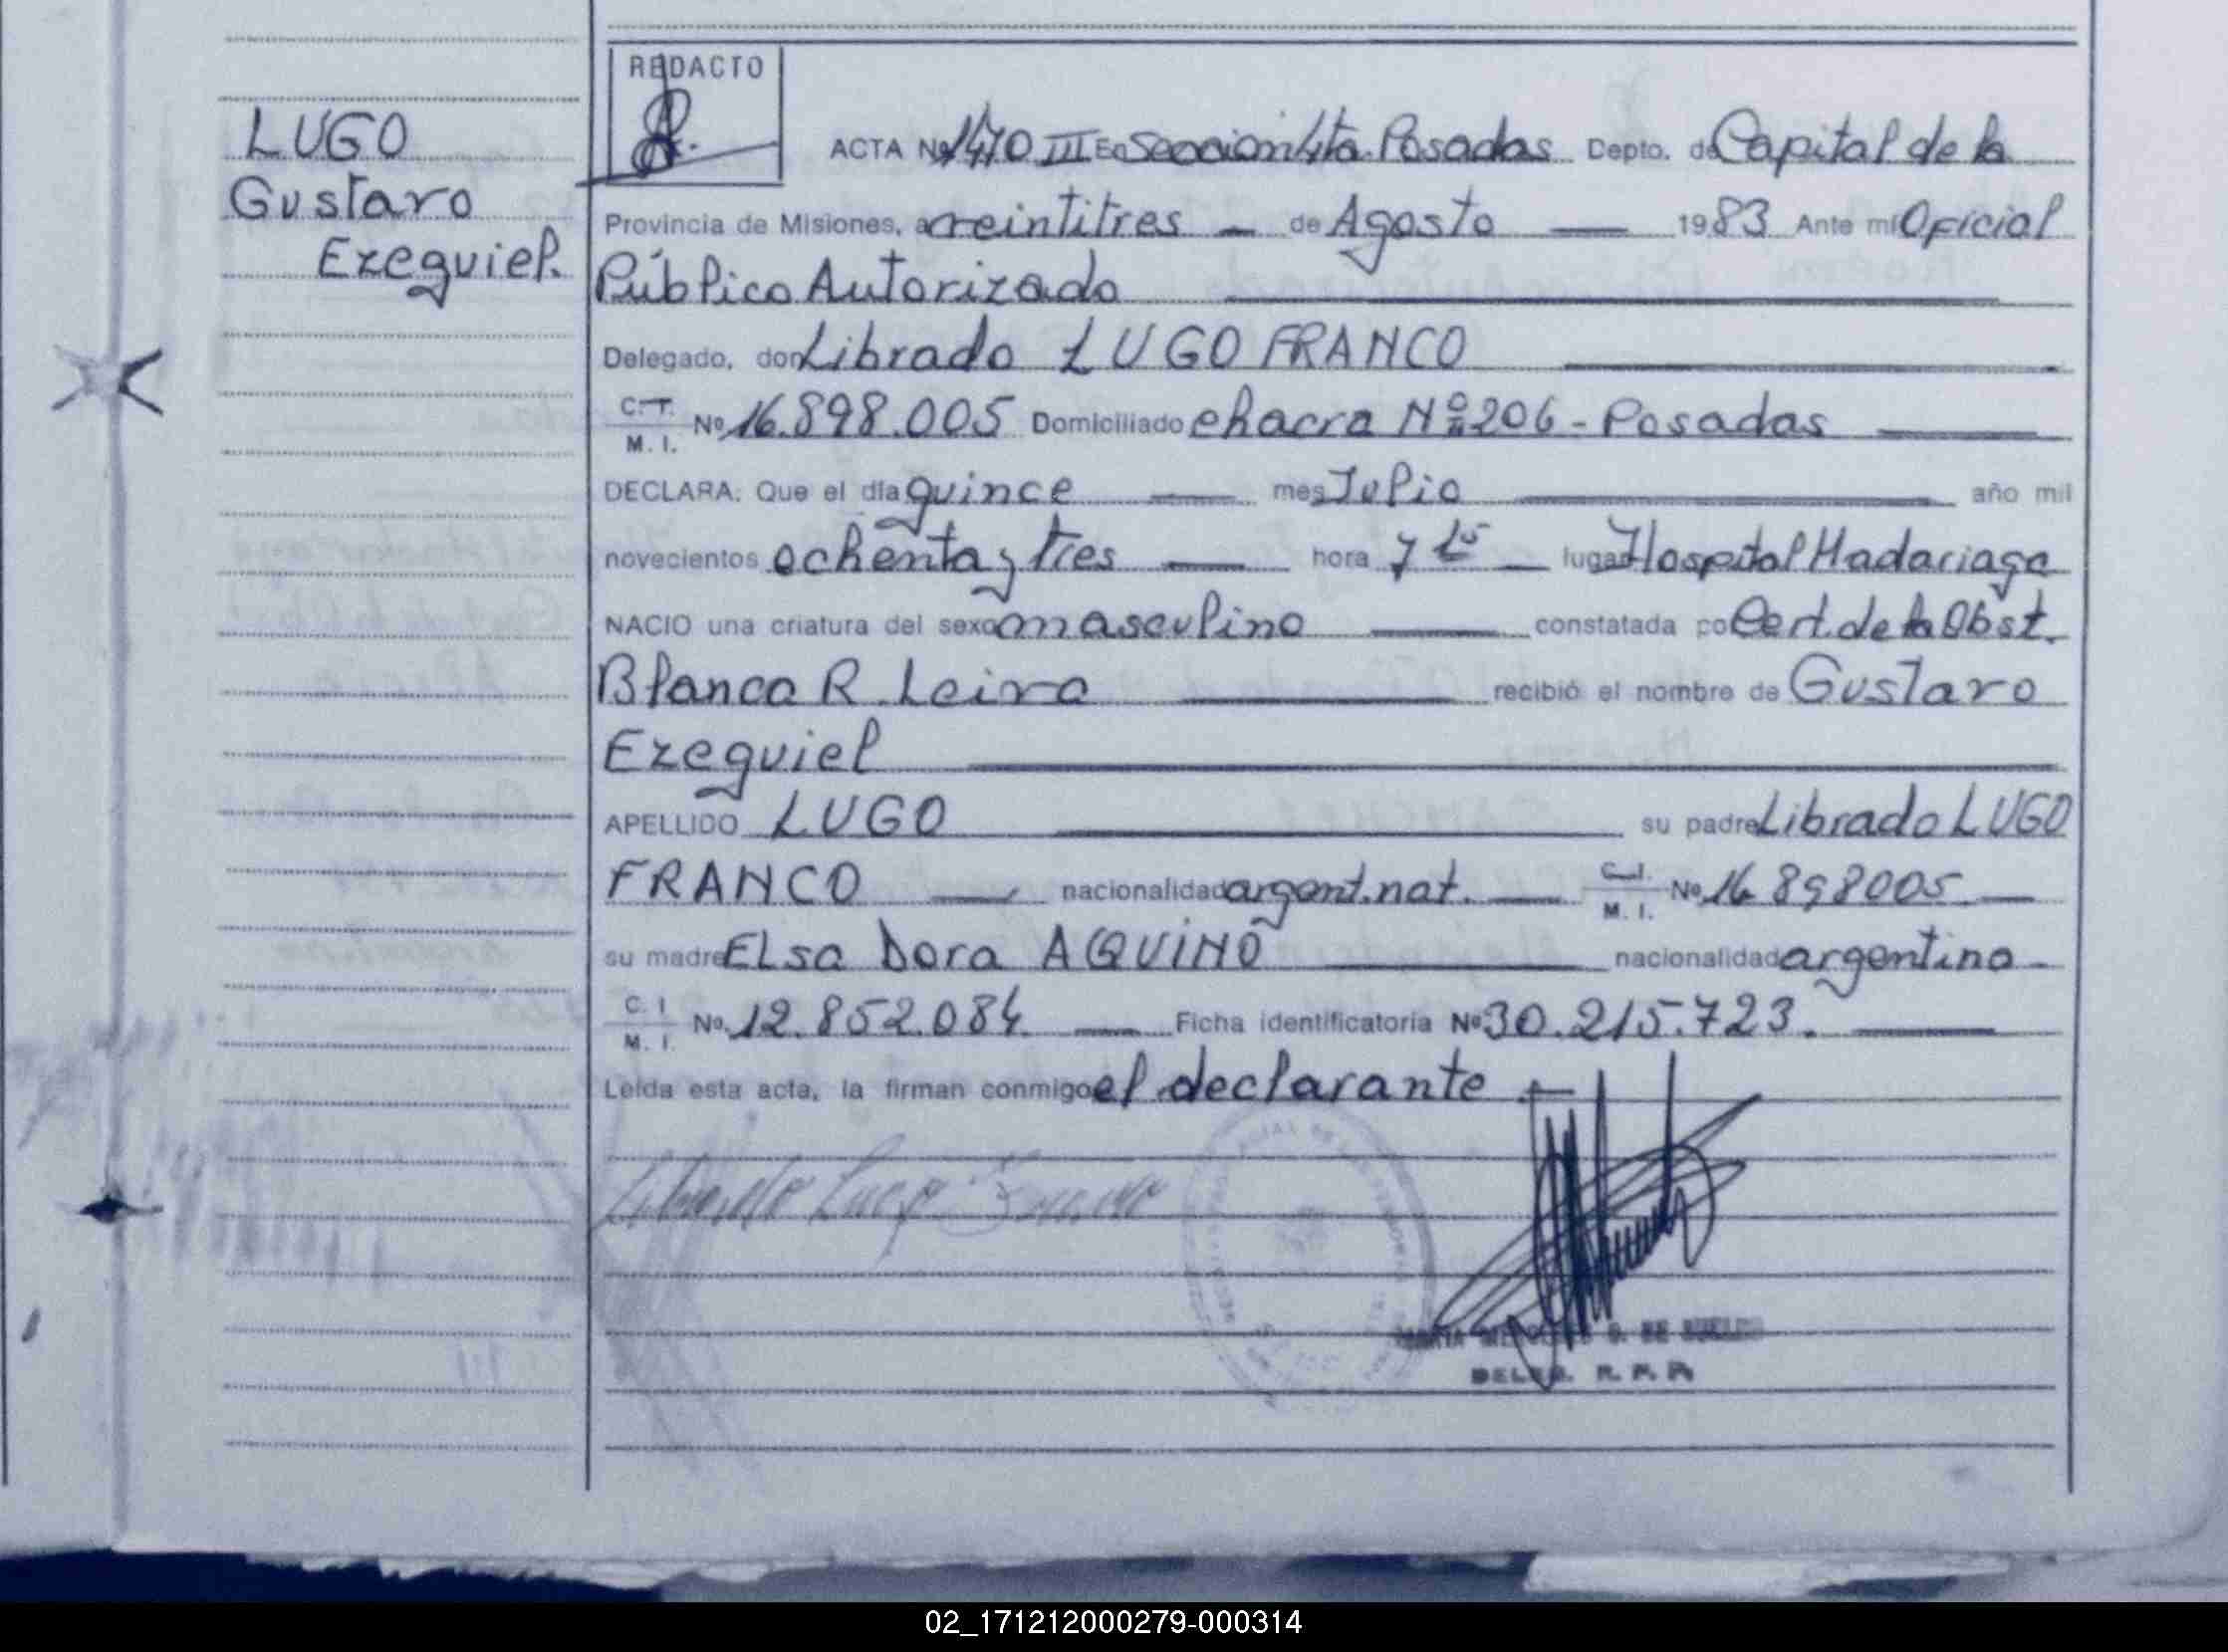 LUGO
Gustavo
Ezequiel.
REDACTO
ACTA Nº 1470 III En Seccion 4ta. Posadas Depto. de Capital de la
Provincia de Misiones, a veintitres de Agosto 1983 Ante mí Oficial
Público Autorizado
Delegado, don Librado LUGO FRANCO
C.T. M. I. Nº 16.898.005 Domiciliado chacra Nº 206 - Posadas
DECLARA: Que el día quince mes Julio año mil
novecientos ochenta y tres hora 7 15 lugar Hospital Madariaga
NACIO una criatura del sexo masculino constatada po Cert. de la Obst.
Blanca R. Leiva recibió el nombre de Gustavo
Ezequiel
APELLIDO LUGO su padre Librado LUGO
FRANCO nacionalidad argent. nat. C.I. M. I. Nº 16 898005
su madre Elsa Dora AQUINO nacionalidad argentina
C. I M. I. Nº 12.852.084 Ficha identificatoria Nº 30.215.723.
Leída esta acta, la firman conmigo el declarante
Librado Lugo Franco
DELEG. R. P. P.
02_171212000279-000314